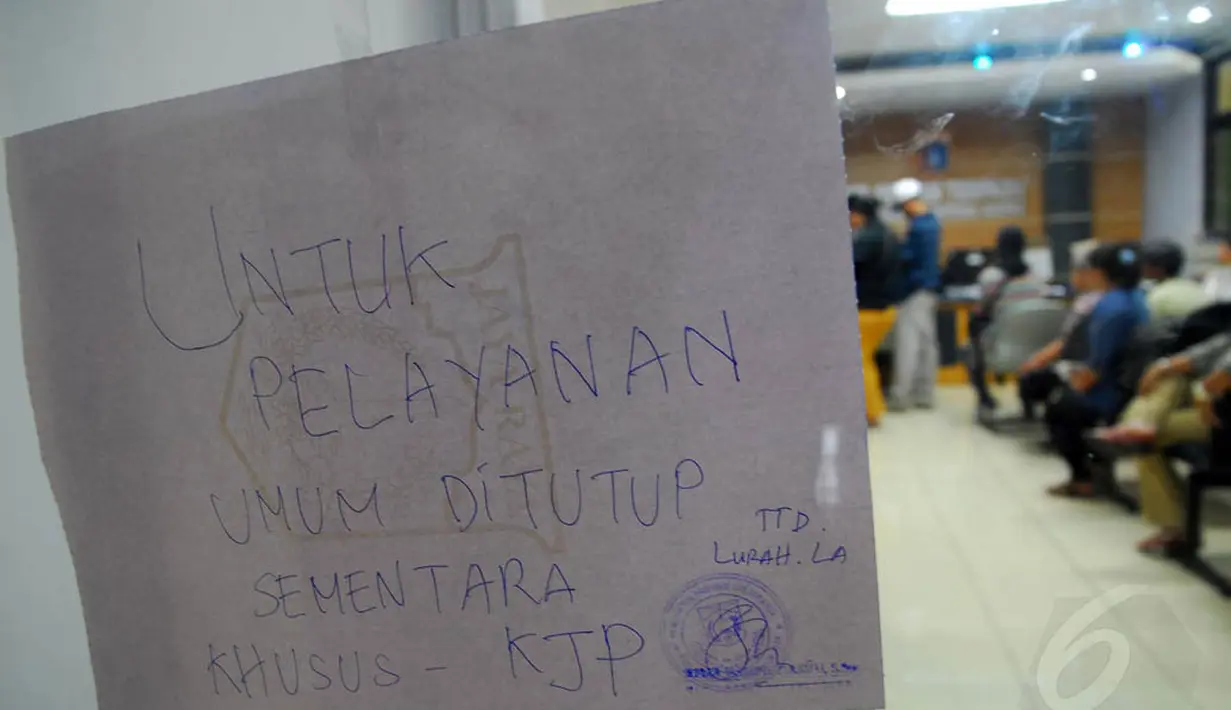 UNTUK
PELAYANAN
UMUM DITUTUP
SEMENTARA
KHUSUS - KJP
TTD.
LURAH. LA
6